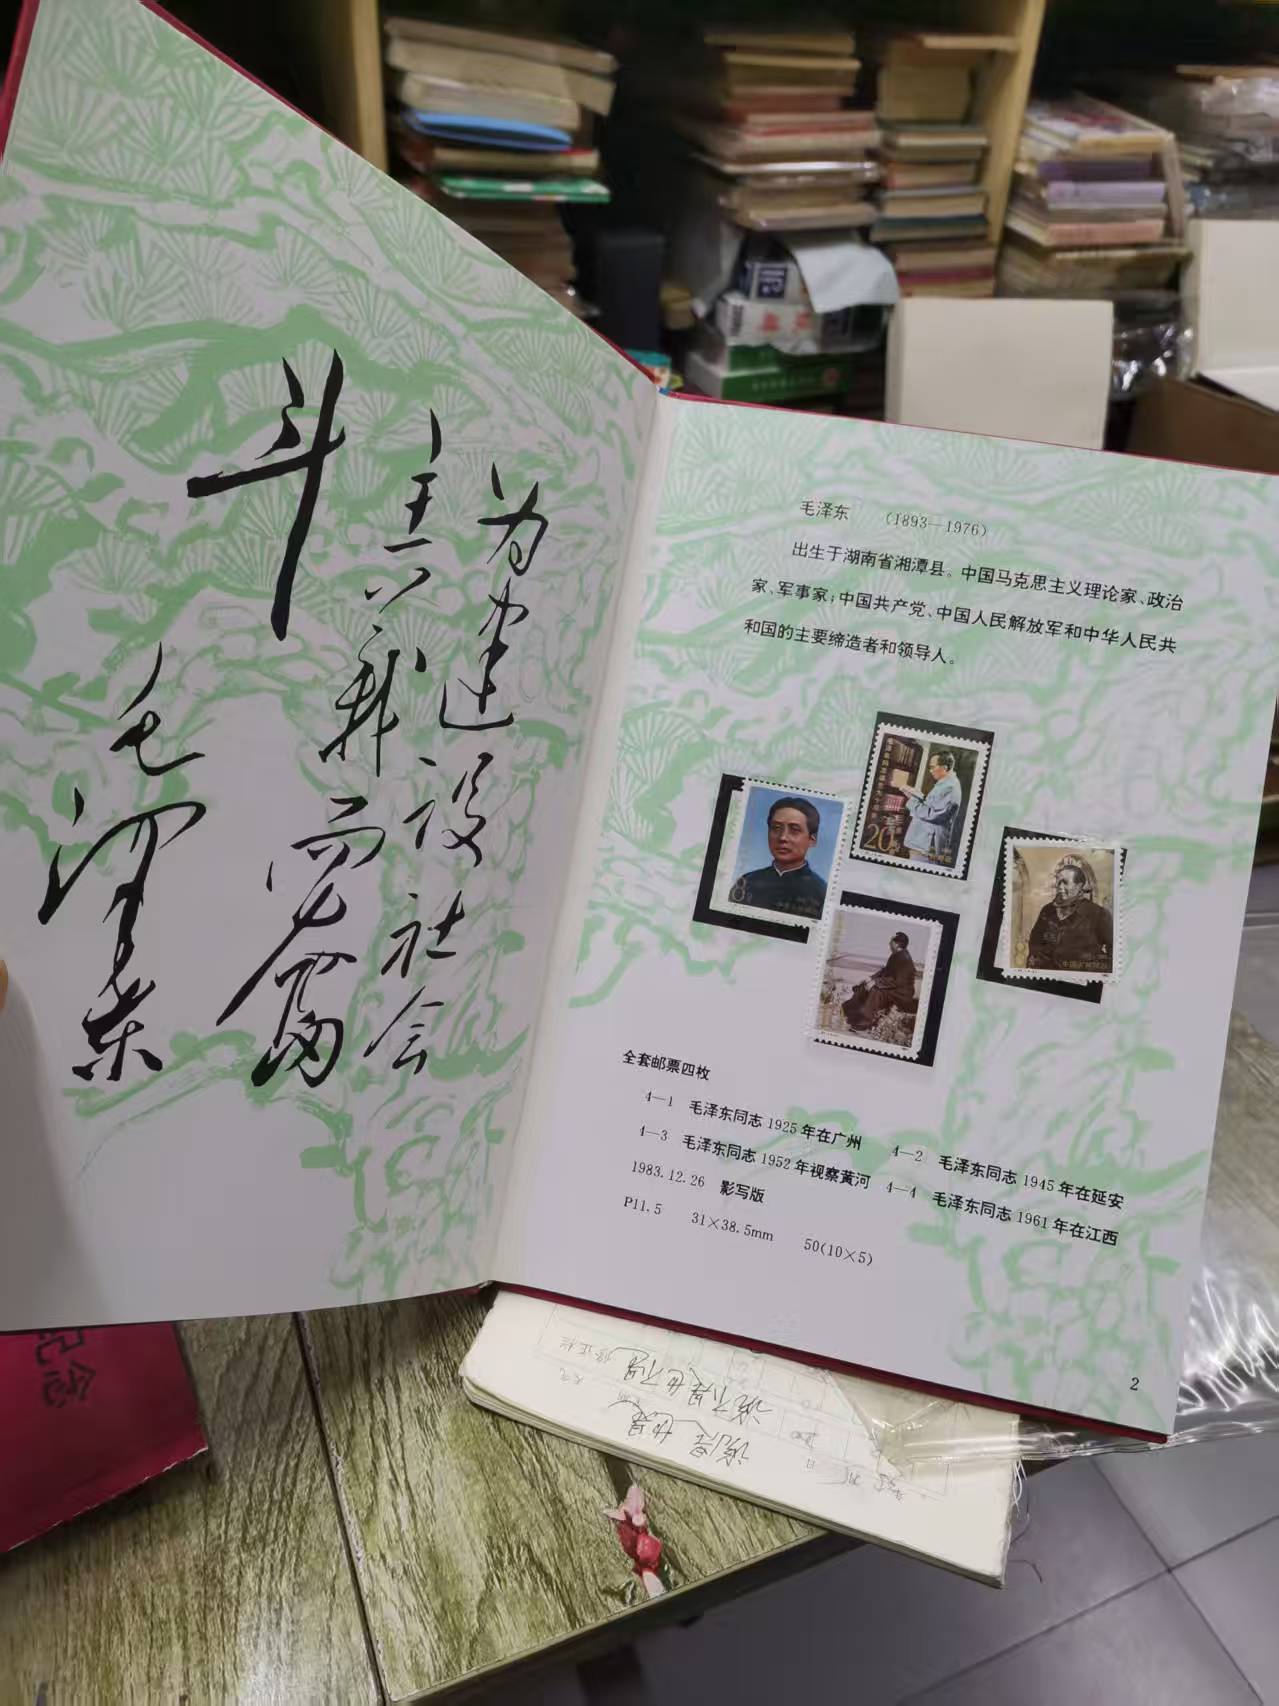 为建设社会
主义新而奋
斗
毛泽东
毛泽东 (1893—1976)
出生于湖南省湘潭县。中国马克思主义理论家、政治
家、军事家;中国共产党、中国人民解放军和中华人民共
和国的主要缔造者和领导人。
8分
20分
全套邮票四枚
4—1 毛泽东同志1925年在广州 4—2 毛泽东同志1945年在延安
4—3 毛泽东同志1952年视察黄河 4—4 毛泽东同志1961年在江西
1983.12.26 影写版
P11.5 31×38.5mm 50(10×5)
2
纪念